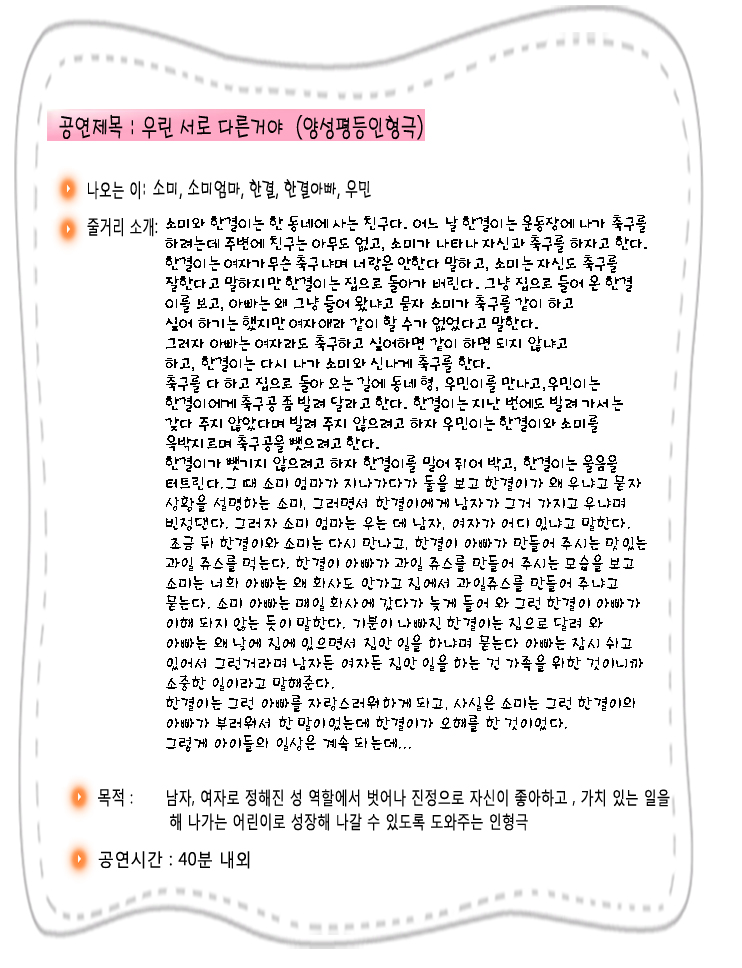 공연제목 : 우린 서로 다른거야 (양성평등인형극)
나오는 이: 소미, 소미엄마, 한결, 한결아빠, 우민
줄거리 소개: 소미와 한결이는 한 동네에 사는 친구다. 어느 날 한결이는 운동장에 나가 축구를
하려는데 주변에 친구는 아무도 없고, 소미가 나타나 자신과 축구를 하자고 한다.
한결이는 여자가 무슨 축구냐며 너랑은 안한다 말하고, 소미는 자신도 축구를
잘한다고 말하지만 한결이는 집으로 돌아가 버린다. 그냥 집으로 들어 온 한결
이를 보고, 아빠는 왜 그냥 들어 왔냐고 묻자 소미가 축구를 같이 하고
싶어 하기는 했지만 여자애라 같이 할 수가 없었다고 말한다.
그러자 아빠는 여자라도 축구하고 싶어하면 같이 하면 되지 않냐고
하고, 한결이는 다시 나가 소미와 신나게 축구를 한다.
축구를 다 하고 집으로 돌아 오는 길에 동네 형, 우민이를 만나고,우민이는
한결이에게 축구공 좀 빌려 달라고 한다. 한결이는 지난 번에도 빌려 가서는
갖다 주지 않았다며 빌려 주지 않으려고 하자 우민이는 한결이와 소미를
윽박지르며 축구공을 뺏으려고 한다.
한결이가 뺏기지 않으려고 하자 한결이를 밀어 쥐어 박고, 한결이는 울음을
터트린다.그 때 소미 엄마가 지나가다가 둘을 보고 한결이가 왜 우냐고 묻자
상황을 설명하는 소미, 그러면서 한결이에게 남자가 그거 가지고 우냐며
빈정댄다. 그러자 소미 엄마는 우는 데 남자, 여자가 어디 있냐고 말한다.
조금 뒤 한결이와 소미는 다시 만나고, 한결이 아빠가 만들어 주시는 맛있는
과일 쥬스를 먹는다. 한결이 아빠가 과일 쥬스를 만들어 주시는 모습을 보고
소미는 너희 아빠는 왜 회사도 안가고 집에서 과일쥬스를 만들어 주냐고
묻는다. 소미 아빠는 매일 회사에 갔다가 늦게 들어 와 그런 한결이 아빠가
이해 되지 않는 듯이 말한다. 기분이 나빠진 한결이는 집으로 달려 와
아빠는 왜 낮에 집에 있으면서 집안 일을 하냐며 묻는다 아빠는 잠시 쉬고
있어서 그런거라며 남자든 여자든 집안 일을 하는 건 가족을 위한 것이니까
소중한 일이라고 말해준다.
한결이는 그런 아빠를 자랑스러워하게 되고, 사실은 소미는 그런 한결이의
아빠가 부러워서 한 말이었는데 한결이가 오해를 한 것이었다.
그렇게 아이들의 일상은 계속 되는데...
목적 : 남자, 여자로 정해진 성 역할에서 벗어나 진정으로 자신이 좋아하고 , 가치 있는 일을
해 나가는 어린이로 성장해 나갈 수 있도록 도와주는 인형극
공연시간 : 40분 내외